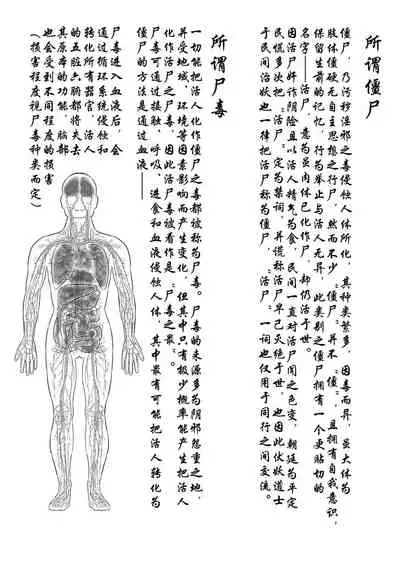 所谓僵尸
僵尸，乃污秽淫邪之毒侵蚀人体所化，其种类繁多，因毒而异，虽大体为
肢体僵硬无自主思想之行尸，然而不少“僵”尸并不“僵”，且拥有自我意识，
保留生前的记忆，行为举止与活人无异，此类别之僵尸拥有一个更贴切的
名字——活尸，意为虽肉体已化作尸，却仍活于世。
因活尸奸诈阴险且以活人精气为食，民间一直对活尸闻之色变，朝廷为平定
民慌多次把“活尸”定为禁词，并谎称活尸早已灭绝于世，也因此伏妖道士
于民间治妖也一律把活尸称为僵尸，“活尸”一词也仅用于同行之间交流。
所谓尸毒
一切能把活人化作僵尸之毒都被称为尸毒。尸毒的来源多为阴邪怨重之地，
并受地域、环境等因素影响而产生变化，但其中只有极少概率能产生把活人
化作活尸之尸毒，因此活尸毒被看作是“尸毒之最”。
尸毒可通过接触、呼吸、进食和血液侵蚀人体，其中最有可能把活人转化为
僵尸的方法是通过血液——
尸毒进入血液后，会
通过循环系统侵蚀和
转化所有器官，活人
的五脏六腑都将失去
其原本的功能，脑部
也会受到不同程度的损害
（损害程度视尸毒种类而定）